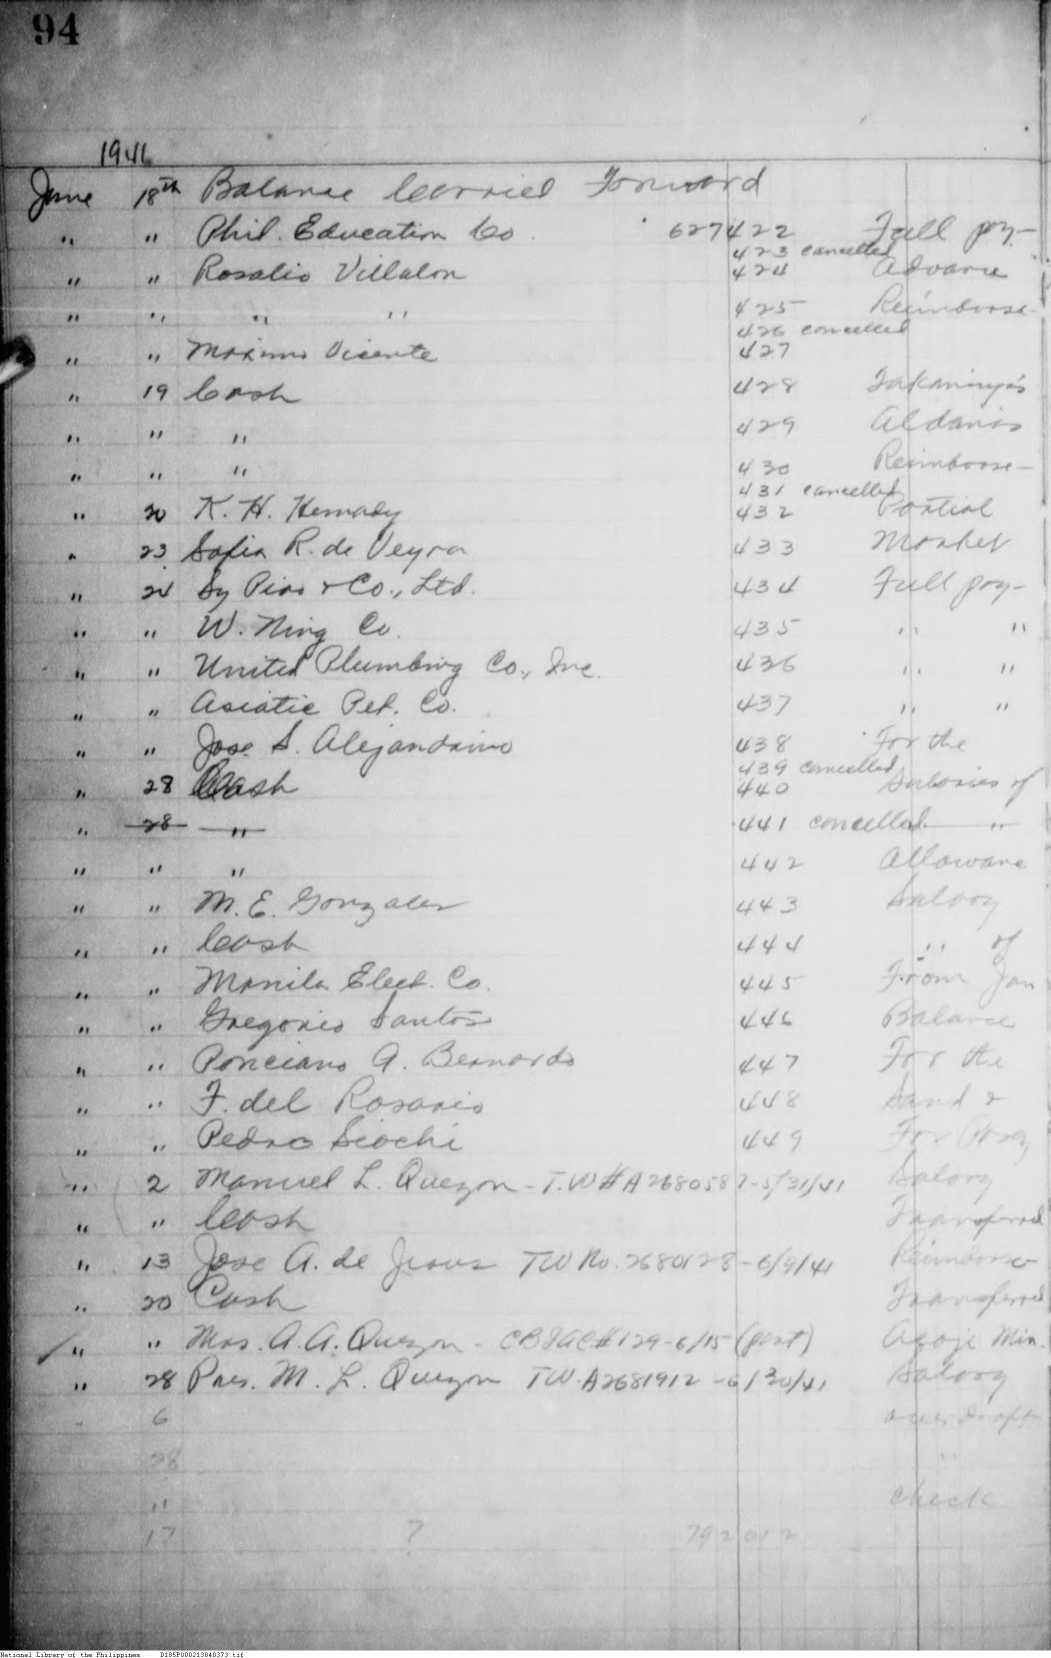 94
1941
June 18th Balance Carried Forward
" " Phil. Education Co. 627422 Full pay-
423 cancelled
" " Rosalio Villalon 424 Advance
" " " " 425 Reimburse-
426 cancelled
" " Maximo Vicente 427
" 19 Cash 428
" " " 429 Aldana's
" " " 430 Reimburse-
431 cancelled
" 20 K. H. Hemady 432 Partial
" 23 Sofia R. de Veyra 433 Market
" 24 Sy Pias & Co., Ltd. 434 Full pay-
" " W. Ning Co. 435 " "
" " United Plumbing Co., Inc. 436 " "
" " Asiatic Pet. Co. 437 " "
" " Jose S. Alejandrino 438 For the
439 cancelled
" 28 Cash 440 Salaries of
" 28 " 441 cancelled "
" " " 442 Allowance
" " M. E. Gonzales 443 Salary
" " Cash 444 " of
" " Manila Elect. Co. 445 From Jan
" " Gregorio Santos 446 Balance
" " Ponciano A. Bernardo 447 For the
" " F. del Rosario 448 Sand &
" " Pedro Siochi 449 For
" 2 Manuel L. Quezon - T.W# A2680587-5/31/41 Salary
" " Cash Transferred
" 13 Jose A. de Jesus TW No. 2680128-6/9/41 Reimburse
" 20 Cash Transferred
" " Mrs. A. A. Quezon - 129-6/15 Min.
" 28 Pres. M. L. Quezon TW. A2681912-6/30/41 Salary
6 overdraft
28 "
" check
17 ? 792012
National Library of the Philippines D185P000213040373.tif